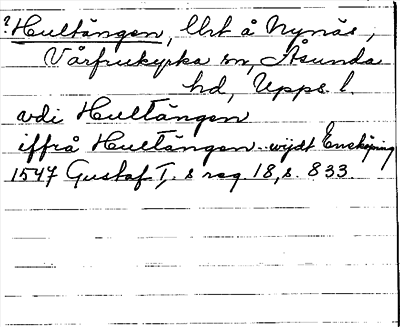 ? Hultängen, Urt å Nynäs,
Vårfrukyrka sn, Åsunda
hd, Upps. l.
vdi Hultängen
iffrå Hultängen wijdt Enköping
1547 Gustaf I:s reg. 18, s. 833.